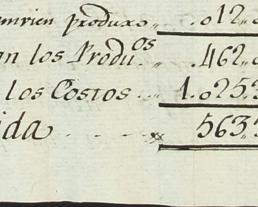 produxo „ . 012„
los Produ.os . 462„
los Costos . . . 1.025„
ida . . . . . 563„